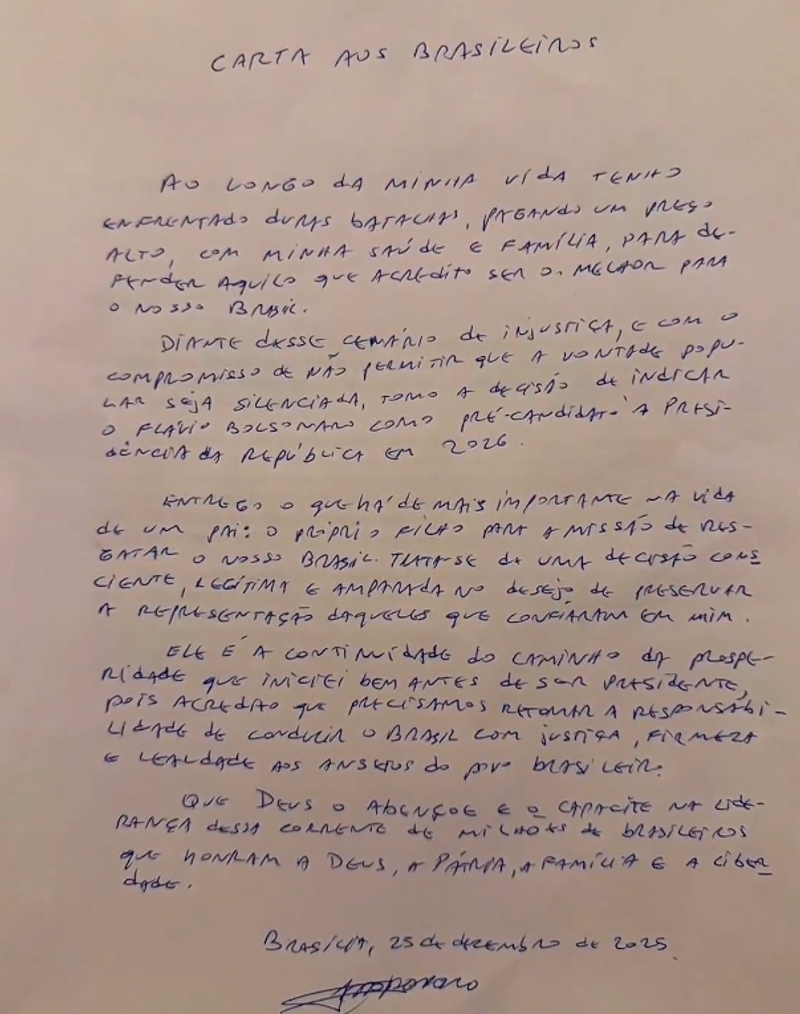 CARTA AOS BRASILEIROS
AO LONGO DA MINHA VIDA TENHO
ENFRENTADO DURAS BATALHAS, PAGANDO UM PREÇO
ALTO, COM MINHA SAÚDE E FAMÍLIA, PARA DE-
FENDER AQUILO QUE ACREDITO SER O MELHOR PARA
O NOSSO BRASIL.
DIANTE DESSE CENÁRIO DE INJUSTIÇA, E COM O
COMPROMISSO DE NÃO PERMITIR QUE A VONTADE POPU-
LAR SEJA SILENCIADA, TOMO A DECISÃO DE INDICAR
O FLÁVIO BOLSONARO COMO PRÉ-CANDIDATO À PRESI-
DÊNCIA DA REPÚBLICA EM 2026.
ENTREGO O QUE HÁ DE MAIS IMPORTANTE NA VIDA
DE UM PAI: O PRÓPRIO FILHO PARA A MISSÃO DE RES-
GATAR O NOSSO BRASIL. TRATA-SE DE UMA DECISÃO CONS
CIENTE, LEGÍTIMA E AMPARADA NO DESEJO DE PRESERVAR
A REPRESENTAÇÃO DAQUELES QUE CONFIARAM EM MIM.
ELE É A CONTINUIDADE DO CAMINHO DA PROSPE-
RIDADE QUE INICIEI BEM ANTES DE SER PRESIDENTE,
POIS ACREDITO QUE PRECISAMOS RETOMAR A RESPONSABI-
LIDADE DE CONDUZIR O BRASIL COM JUSTIÇA, FIRMEZA
E LEALDADE AOS ANSEIOS DO POVO BRASILEIRO.
QUE DEUS O ABENÇOE E O CAPACITE NA LIDE-
RANÇA DESSA CORRENTE DE MILHÕES DE BRASILEIROS
QUE HONRAM A DEUS, A PÁTRIA, A FAMÍLIA E A LIBER
DADE.
BRASÍLIA, 25 DE DEZEMBRO DE 2025.